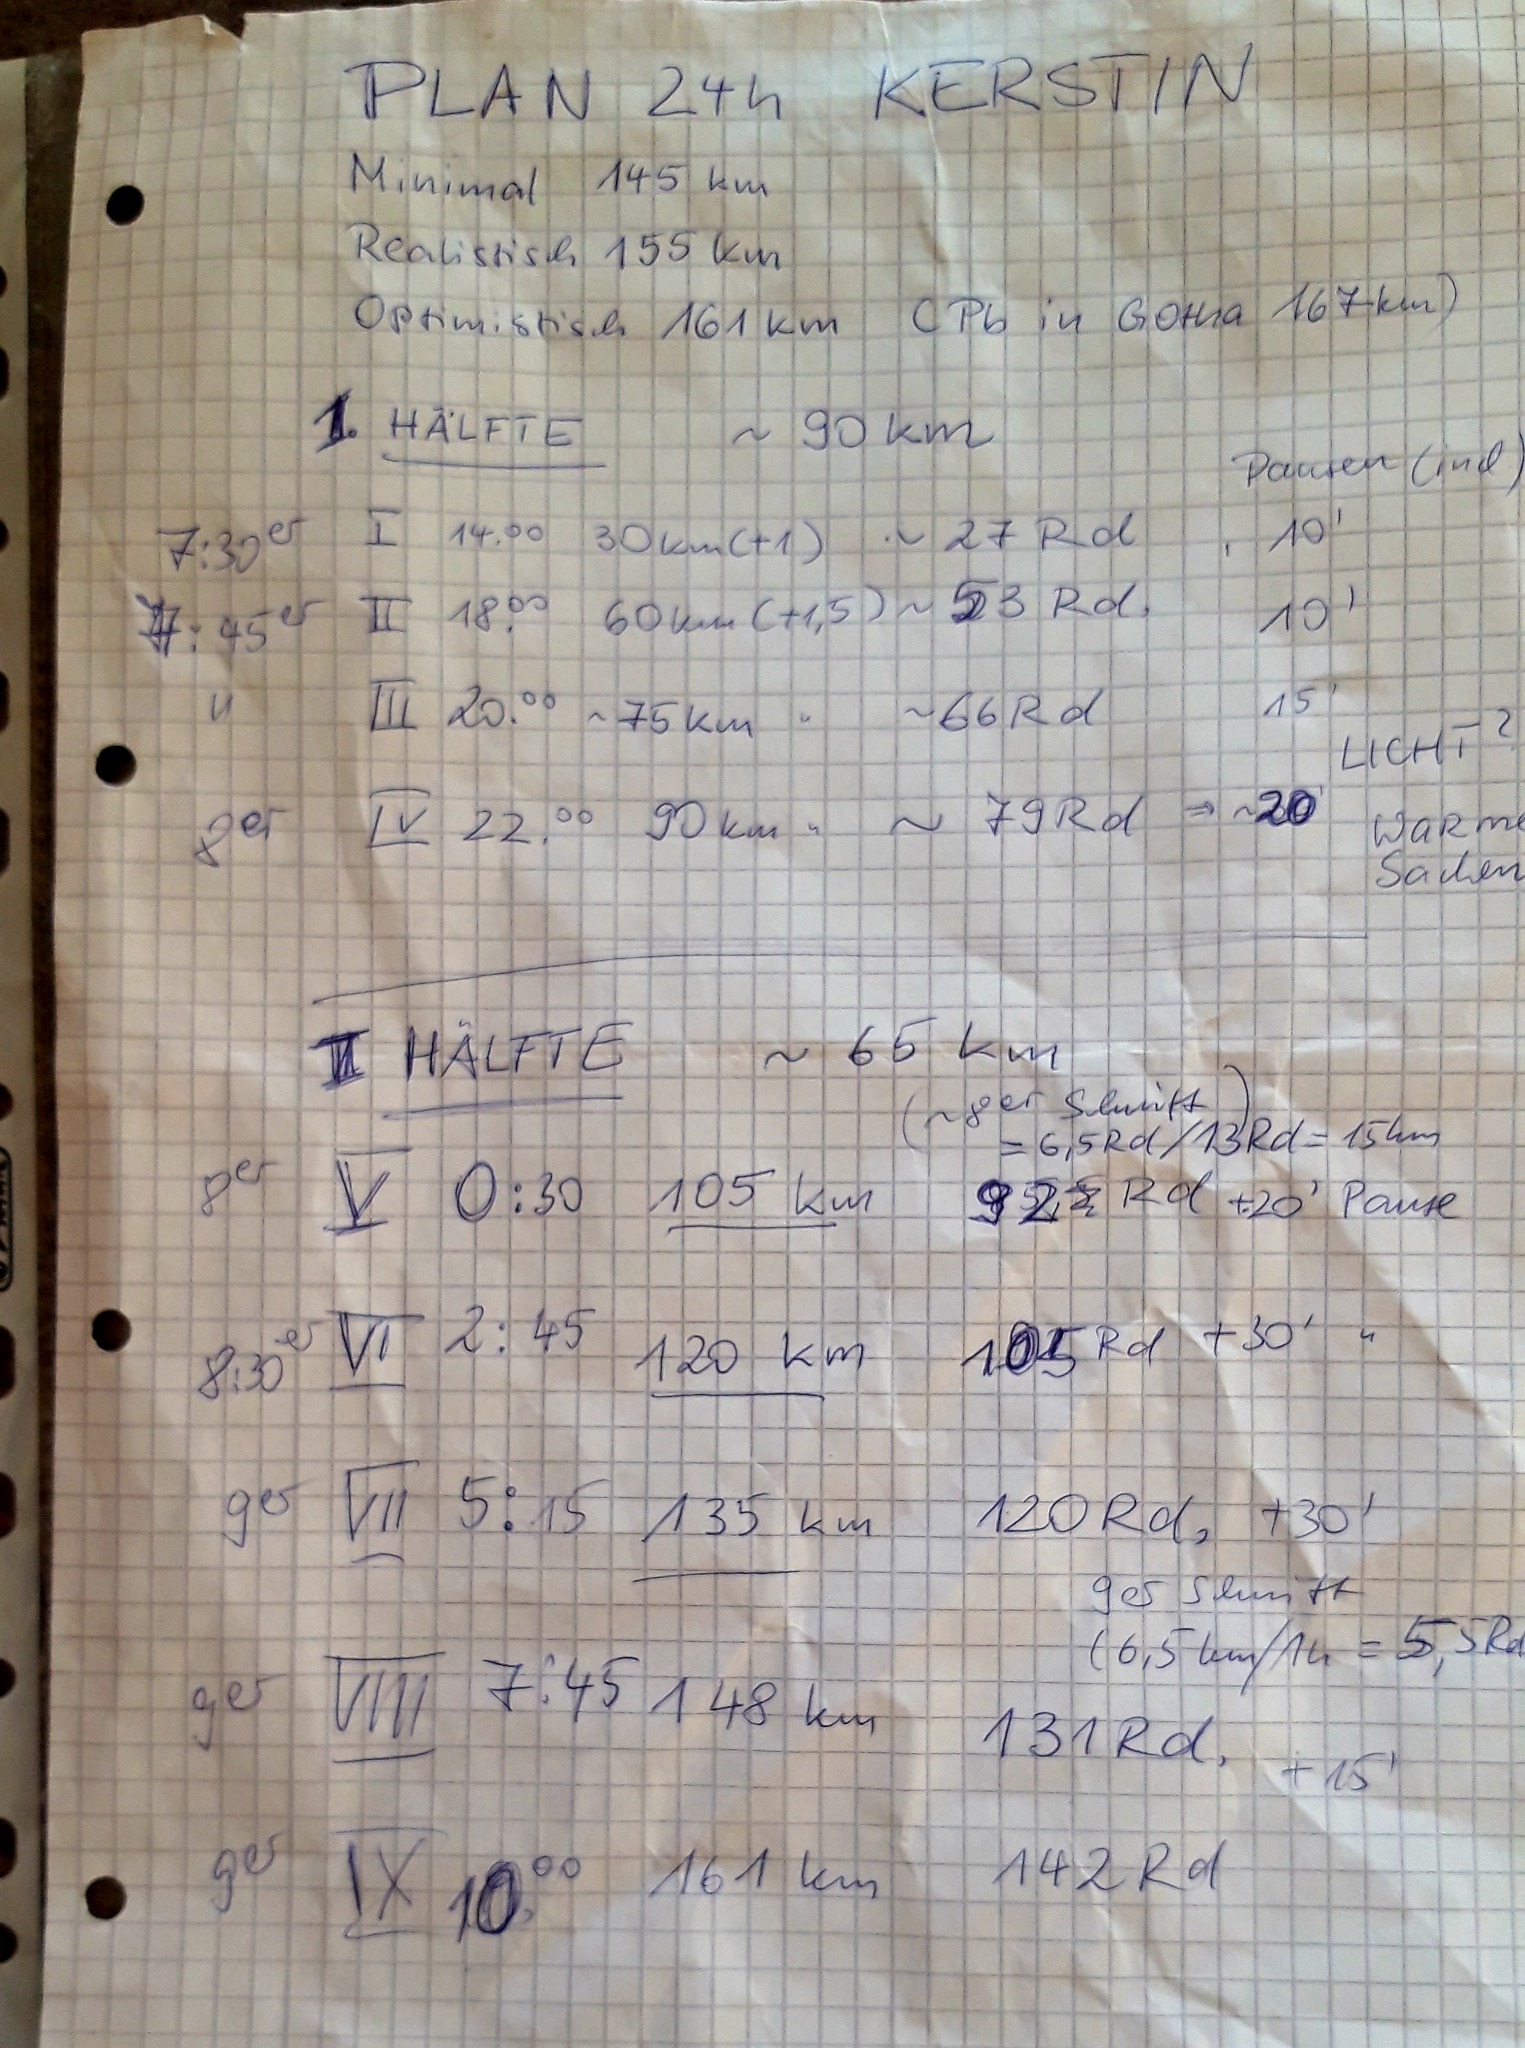 PLAN 24h KERSTIN
Minimal 145 km
Realistisch 155 km
Optimistisch 161 km (Pb in Gotha 167km)
1. HÄLFTE ~ 90 km
Pausen (ind)
7:30er I 14.00 30km(+1) ~ 27 Rd 10'
7:45er II 18.00 60km(+1,5) ~ 53 Rd. 10'
" III 20.00 ~75km " ~66Rd 15'
LICHT?
8er IV 22.00 90km " ~ 79Rd ⇒ ~20'
Warme
Sachen
II HÄLFTE ~ 65 km
(~8er Schnitt)
= 6,5Rd/13Rd = 15km
8er V 0:30 105 km Rd +20' Pause
8:30er VI 2:45 120 km 105 Rd +30' "
9er VII 5:15 135 km 120Rd, +30'
9er Schnitt
(6,5km/1h = 5,5Rd
9er VIIII 7:45 148 km 131Rd, +15'
9er IX 10.00 161 km 142Rd